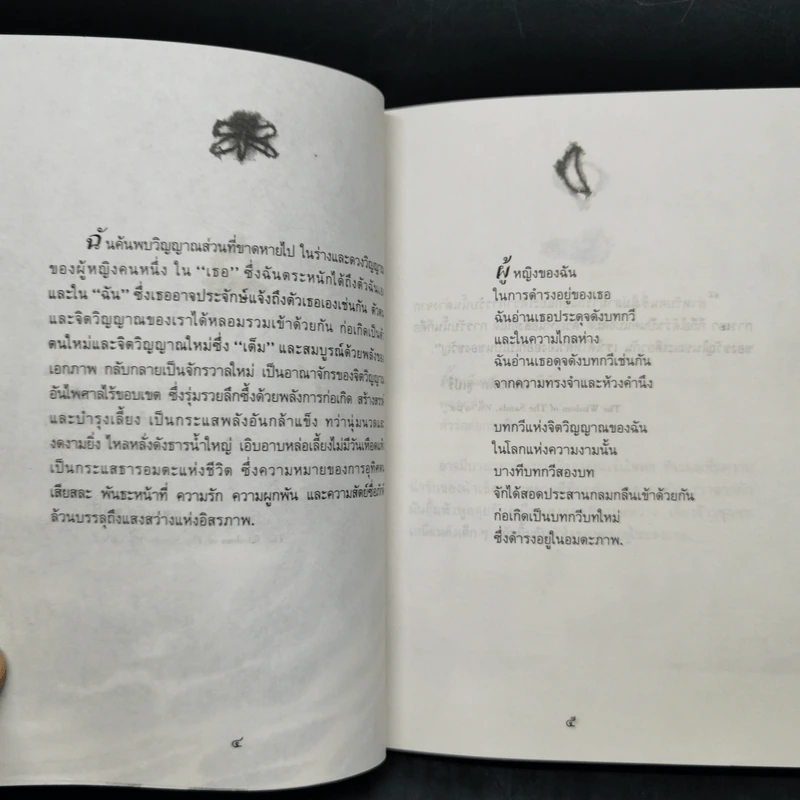 ฉันค้นพบวิญญาณส่วนที่ขาดหายไป ในร่างและดวงวิญญาณ
ของผู้หญิงคนหนึ่ง ใน “เธอ” ซึ่งฉันตระหนักได้ถึงตัวฉันเอง
และใน “ฉัน” ซึ่งเธออาจประจักษ์แจ้งถึงตัวเธอเองเช่นกัน
และจิตวิญญาณของเราได้หลอมรวมเข้าด้วยกัน ก่อเกิดเป็น
ตนใหม่และจิตวิญญาณใหม่ซึ่ง “เต็ม” และสมบูรณ์ด้วยพลังของ
เอกภาพ กลับกลายเป็นจักรวาลใหม่ เป็นอาณาจักรของจิตวิญญาณ
อันไพศาลไร้ขอบเขต ซึ่งรุ่มรวยลึกซึ้งด้วยพลังการก่อเกิด สร้างสรรค์
และบำรุงเลี้ยง เป็นกระแสพลังอันกล้าแข็ง ทว่านุ่มนวลและ
งดงามยิ่ง ไหลหลั่งดังธารน้ำใหญ่ เอิบอาบหล่อเลี้ยงไม่มีวันเหือดแห้ง
เป็นกระแสธารอมตะแห่งชีวิต ซึ่งความหมายของการอุทิศตน
เสียสละ พันธะหน้าที่ ความรัก ความผูกพัน และความสัตย์ซื่อ
ล้วนบรรลุถึงแสงสว่างแห่งอิสรภาพ.
๔
ผู้หญิงของฉัน
ในการดำรงอยู่ของเธอ
ฉันอ่านเธอประดุจดังบทกวี
และในความไกลห่าง
ฉันอ่านเธอดุจดังบทกวีเช่นกัน
จากความทรงจำและห้วงคำนึง
บทกวีแห่งจิตวิญญาณของฉัน
ในโลกแห่งความงามนั้น
บางทีบทกวีสองบท
จักได้สอดประสานกลมกลืนเข้าด้วยกัน
ก่อเกิดเป็นบทกวีบทใหม่
ซึ่งดำรงอยู่ในอมตะภาพ.
๕